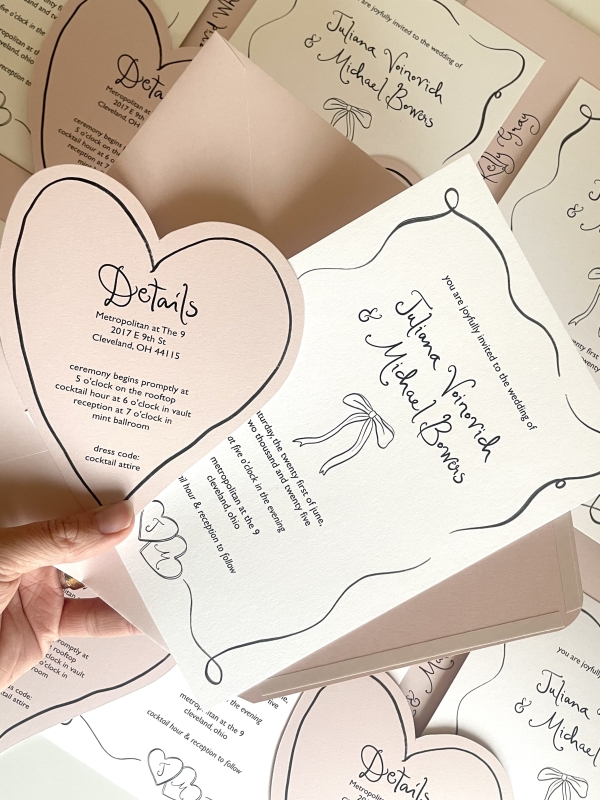 Details
Metropolitan at The 9
2017 E 9th St
Cleveland, OH 44115
ceremony begins promptly at
5 o'clock on the rooftop
cocktail hour at 6 o'clock in vault
reception at 7 o'clock in
mint ballroom
dress code:
cocktail attire
you are joyfully invited to the wedding of
Juliana Voinovich
& Michael Bowers
the twenty first of june,
two thousand and twenty five
at five o'clock in the evening
metropolitan at the 9
cleveland, ohio
hour & reception to follow
J
M
are joyfully invited to the wedding of
Juliana Voinovich
& Michael Bowers
Kelly Gray
Metropolitan at
2017 E 9th
Cleveland,
ceremony begins
5 o'clock on the
cocktail hour at 6 o'
reception at 7
cleveland, ohio
promptly at
rooftop
o'clock in vault
o'clock in
dress code:
cocktail attire
the evening
metropolitan at the 9
cleveland, ohio
cocktail hour & reception to follow
J
M
Details
Metropolitan at The 9
you are joyfully
Juliana
& Michael